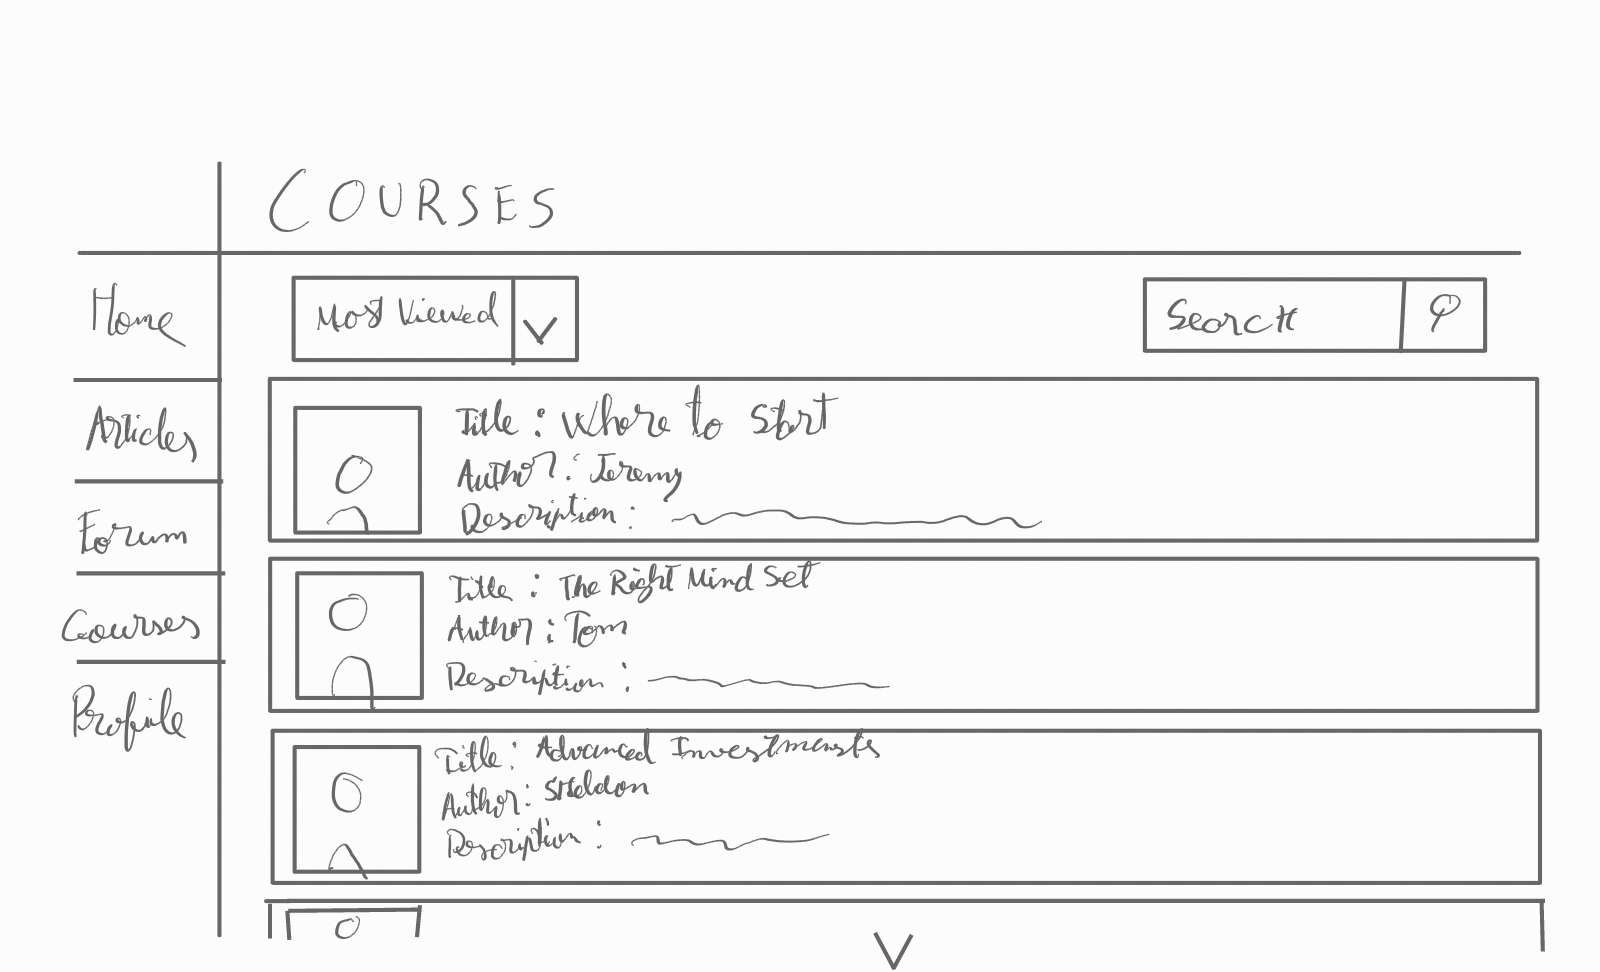 COURSES
Home
Articles
Forum
Courses
Profile
Most Viewed
Search
Title : Where to Start
Author : Jeremy
Description :
Title : The Right Mind Set
Author : Tom
Description :
Title : Advanced Investments
Author : Sheldon
Description :